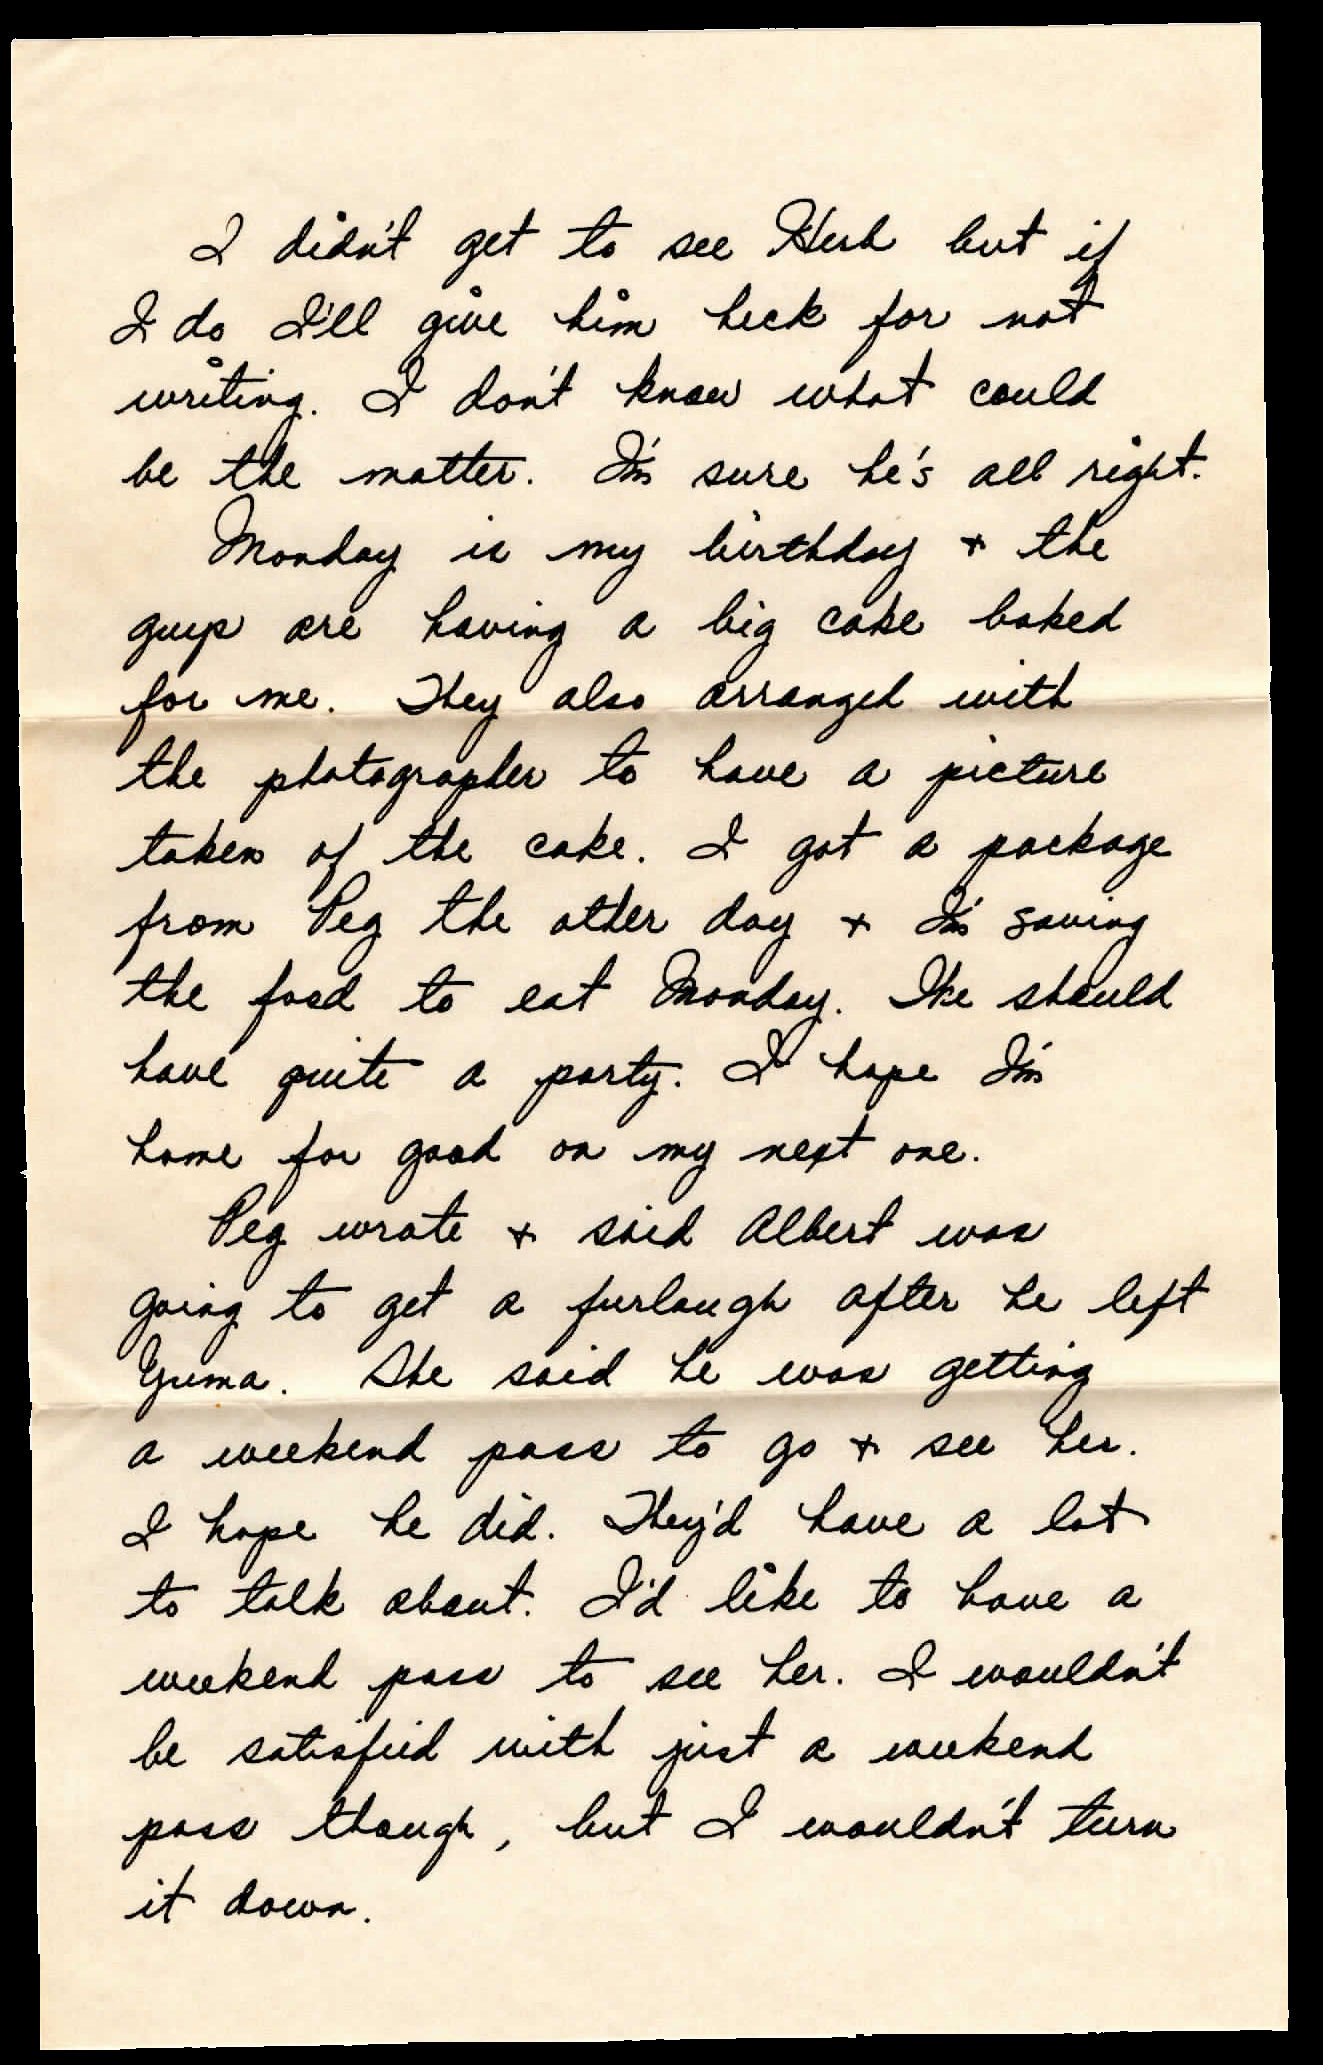 I didn't get to see Herb but if
I do I'll give him heck for not
writing. I don't know what could
be the matter. I'm sure he's all right.
Monday is my birthday + the
guys are having a big cake baked
for me. They also arranged with
the photographer to have a picture
taken of the cake. I got a package
from Peg the other day + I'm saving
the food to eat Monday. We should
have quite a party. I hope I'm
home for good on my next one.
Peg wrote + said Albert was
going to get a furlough after he left
Yuma. She said he was getting
a weekend pass to go + see her.
I hope he did. They'd have a lot
to talk about. I'd like to have a
weekend pass to see her. I wouldn't
be satisfied with just a weekend
pass though, but I wouldn't turn
it down.